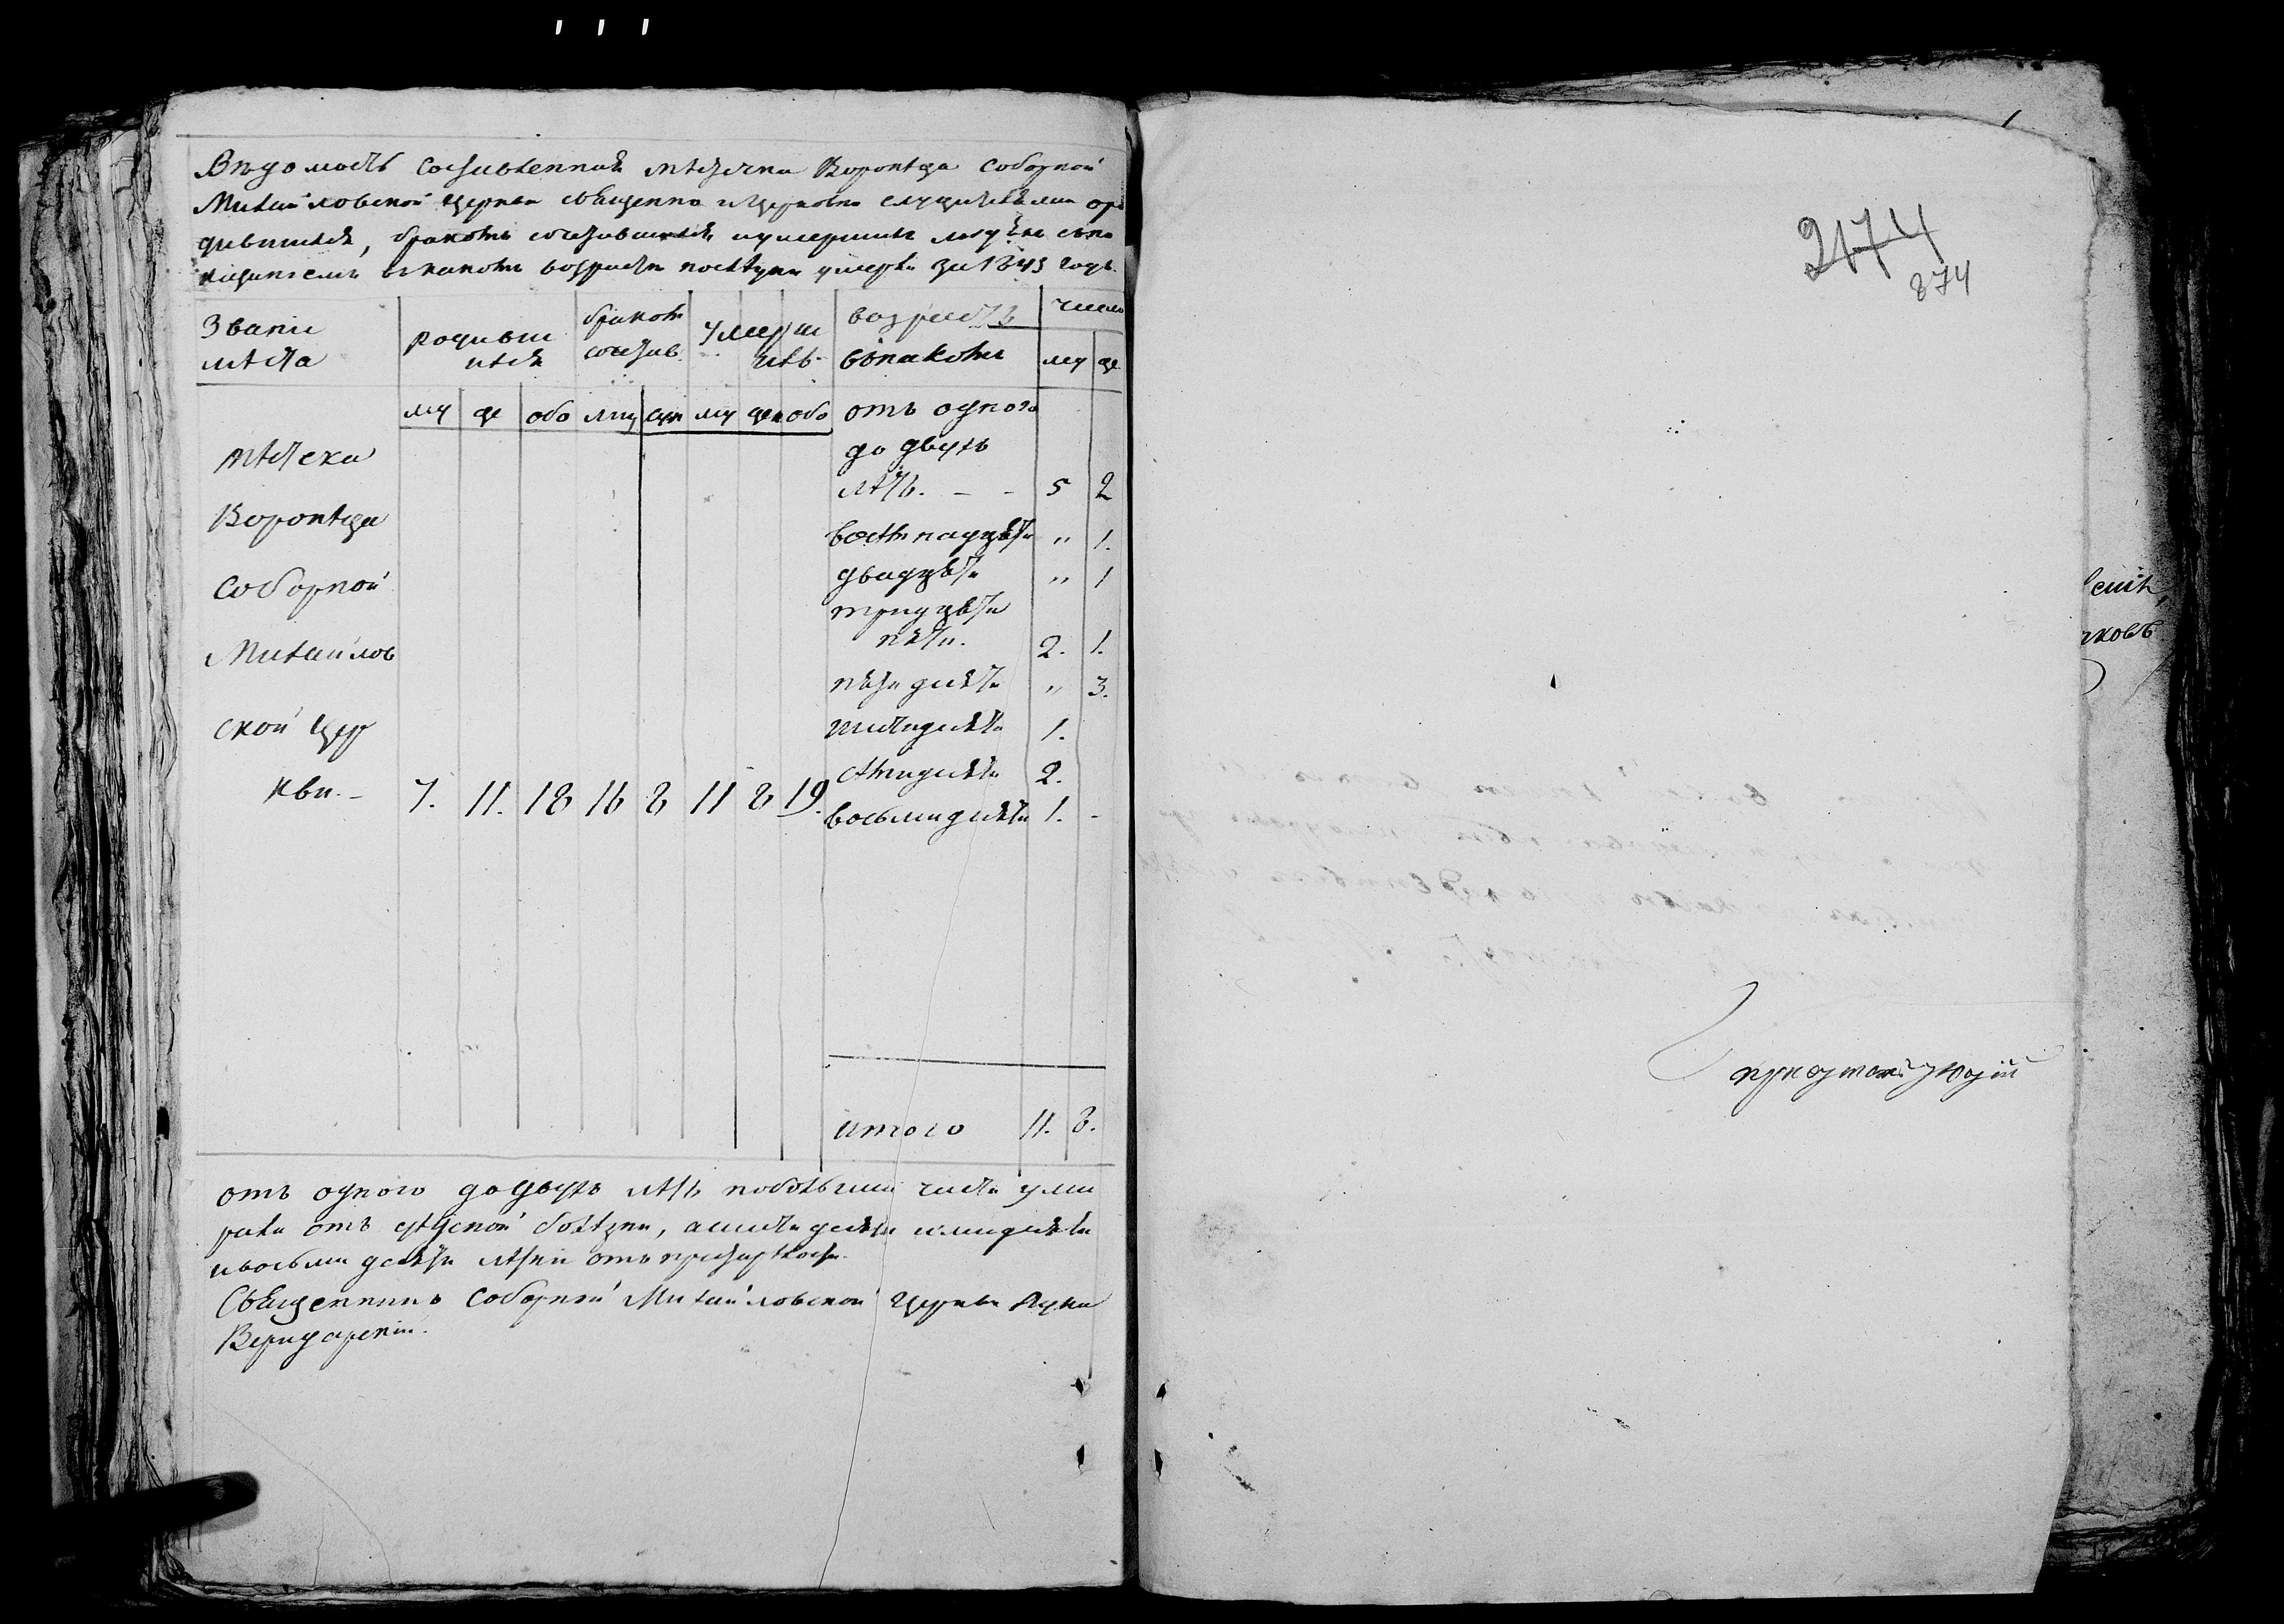 Вѣдомость составленная мѣстечка Воронѣжа соборной
Михайловской церкви священно и церковно служителями о ро
дившихся, бракомъ сочетавшихся и умершихъ людяхъ съ по
казаніемъ въ какомъ возрастѣ послѣдуни умерли за 1843 годъ.
Звание мѣста
родивши ихся
бракомъ сочетав.
умерши ихъ
возрастъ въ какомъ
число
му же
му же обо лиц му же обо
мѣстечка
Воронѣжа
соборной
Михайлов
ской цер
кви. – 7. 11. 18 16 8 11 8 19.
отъ одного
до двухъ
лѣтъ. – – 5 2
восѣмнадцяти " 1.
двадцяти " 1
тридцяти
пяти. 2. 1.
пятидесяти " 3.
шестидесяти 1.
сѣмидесяти 2.
восьмидесяти 1. -
итого 11. 8.
отъ одного до двухъ лѣтъ по большей части уми
рали отъ дѣтской болѣзни, а шестидесяти и мидесяти
и восьмидесяти лѣтніи отъ престарѣлости.
Священникъ соборной Михайловской церкви Лука
2174
874